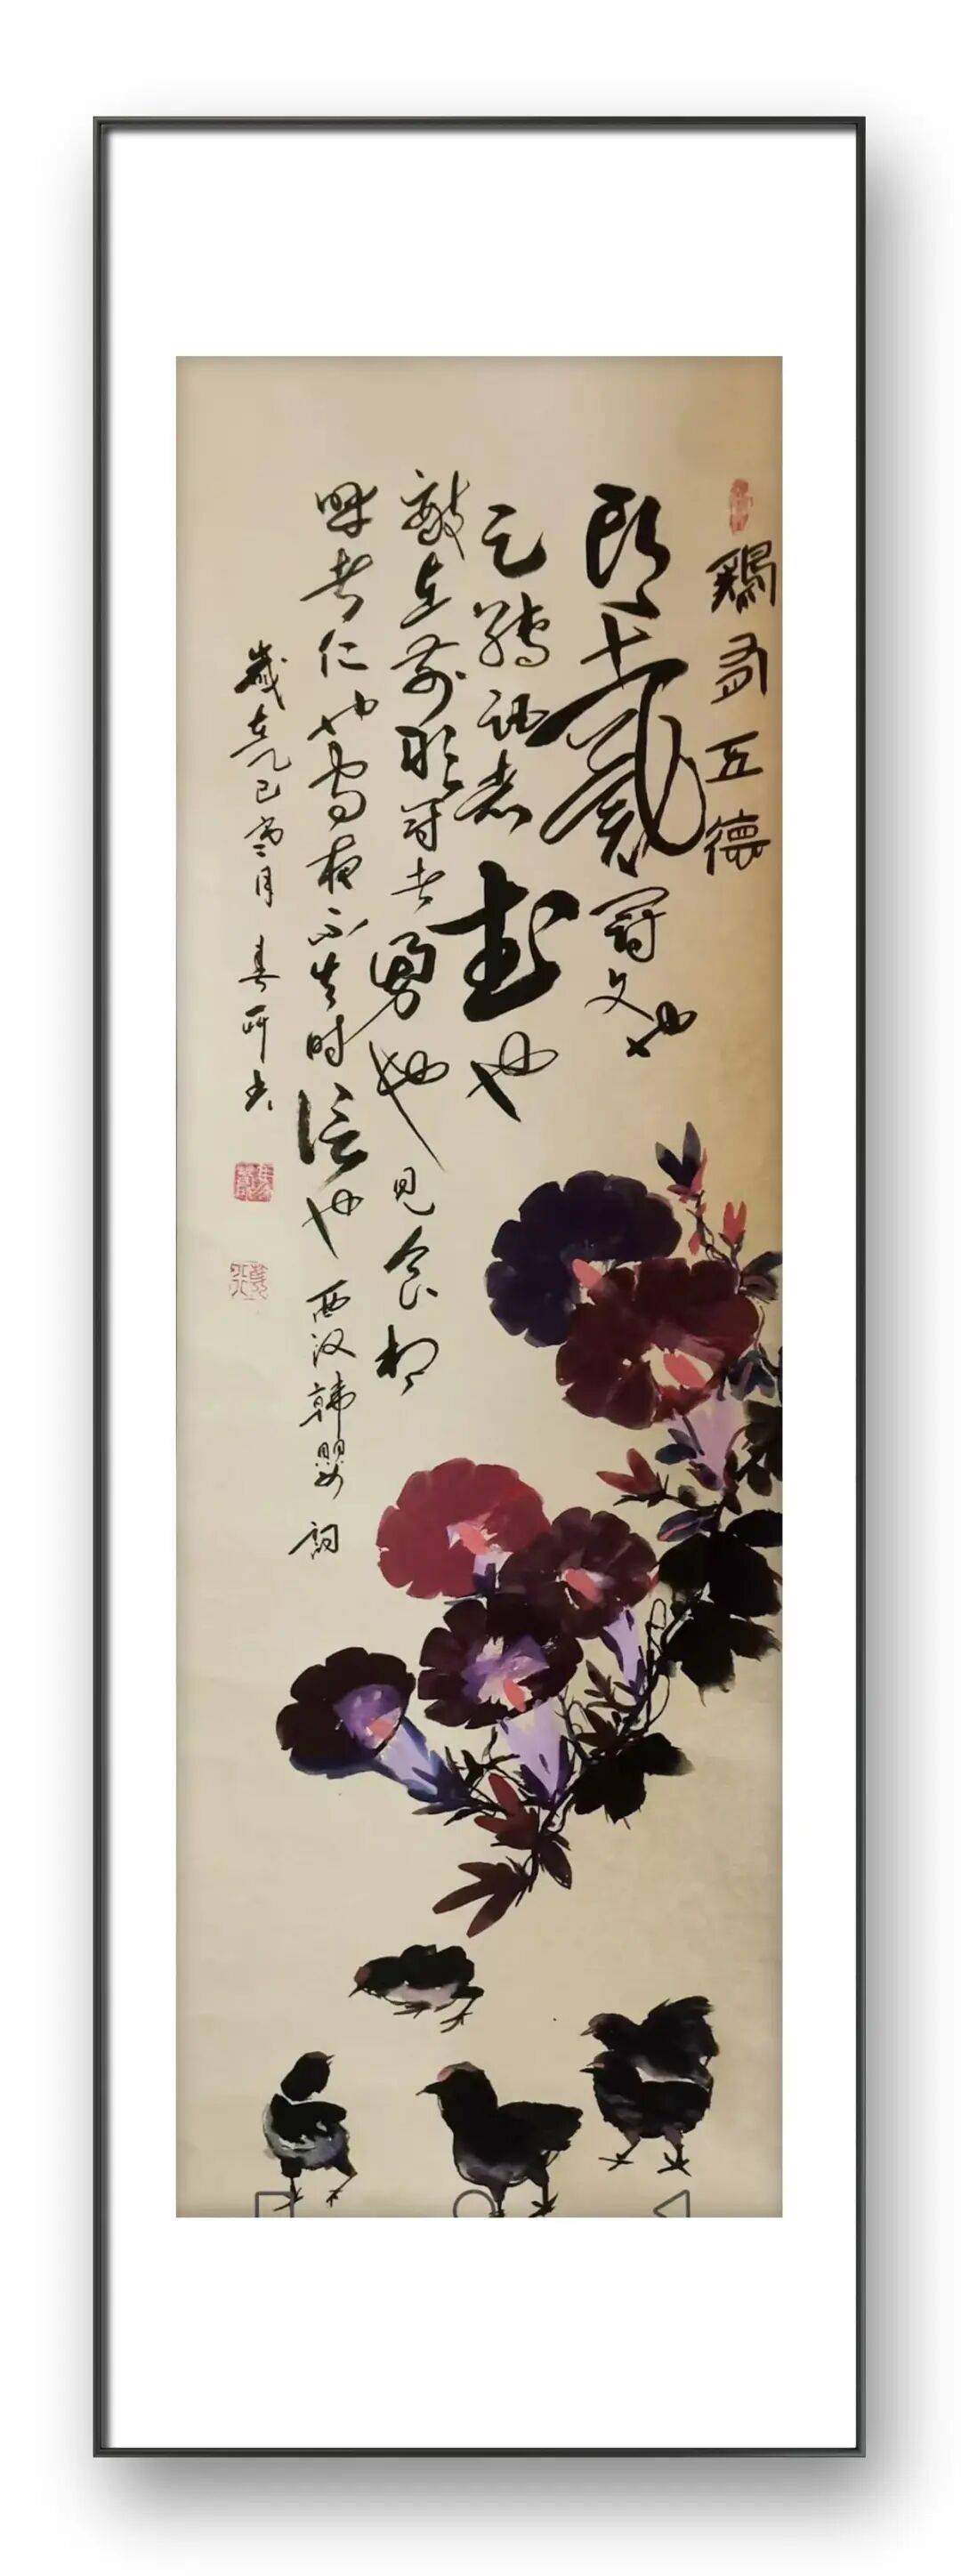 鷄有五德
頭戴冠文也
足搏距者武也
敵在前敢鬥者勇也見食相
呼者仁也守夜不失時信也西汉韓嬰詞
歲在乙巳月書